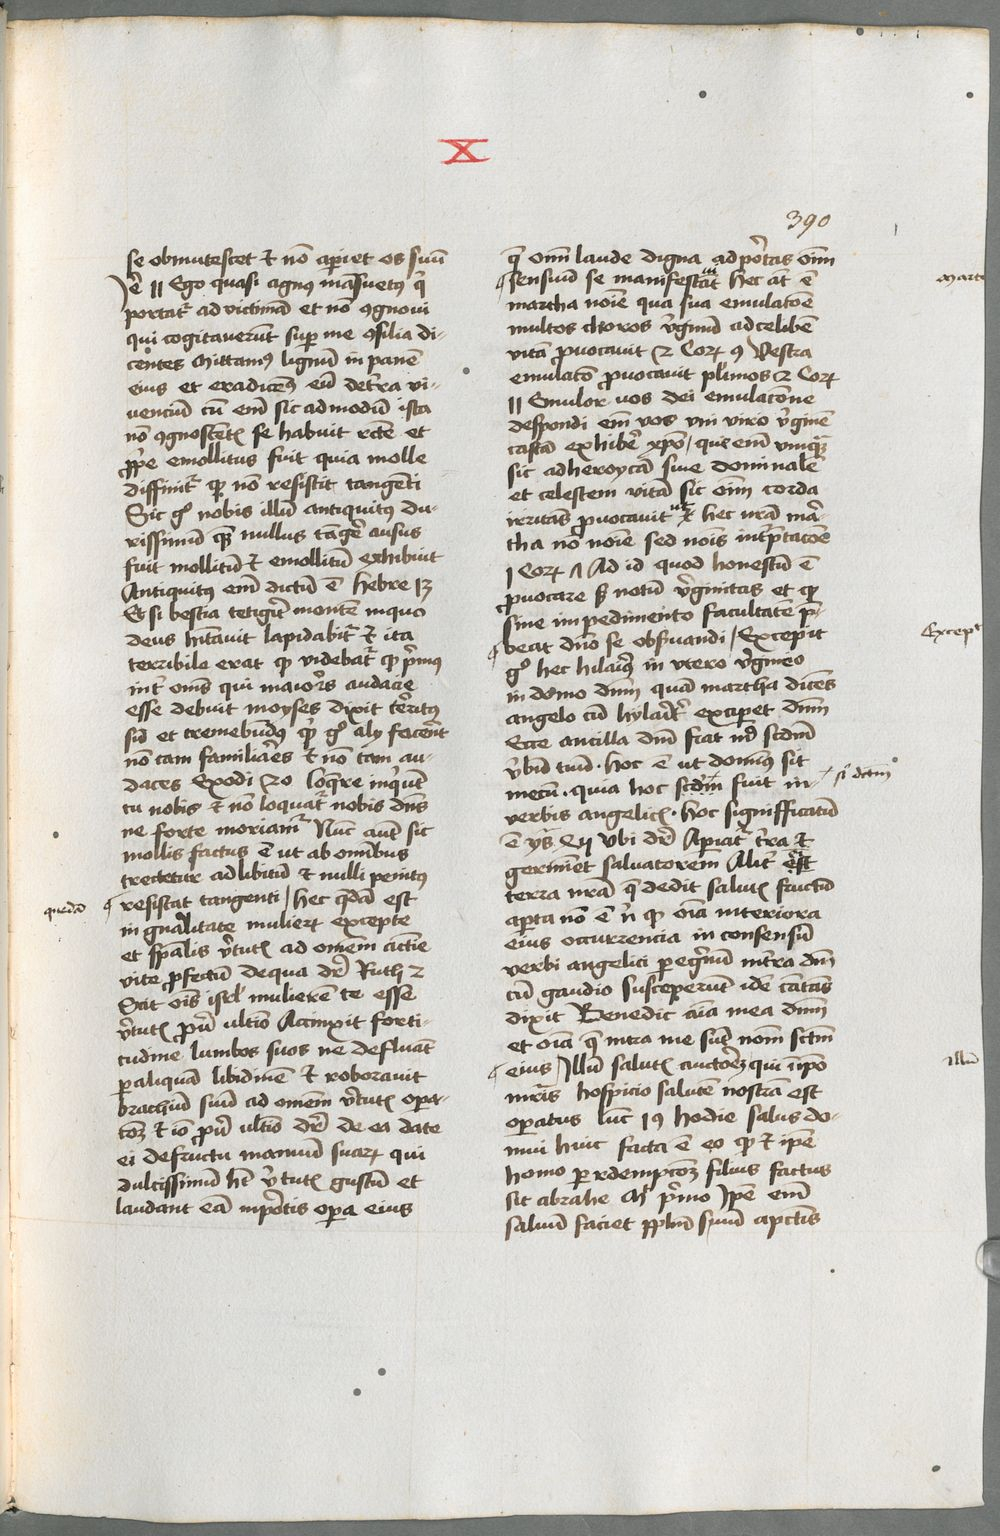 X
390
se obmutescet et nō aperiet os suū
Jē 11 Ego quasi agnus māsuetus q̄
portat̄ ad victimā et nō ꝯgnoui
qui cogitauerūt sup me ꝯsilia di-
centes Mittamꝰ lignū in panē
eius et eradicemꝰ eū de t̄ra vi-
uenciū cū em̄ sic ad modū ista
nō ꝯgnoscētꝭ se habuit rcte et
ꝓp̄e emollitus fuit quia molle
diffinit̄ qꝫ nō resistit tangēti
Sic gͦ nobis illud antiquitꝰ du-
rissimū qꝫ nullus tāgere ausus
fuit mollitū et emollitū exhibuit
Antiquitꝰ em̄ dictū ē Hebre 13
Et si bestia tetigit̄ montē in quo
deus hitauit lapidabit̄ et ita
terribile erat qꝫ videbat̄ qꝫ p̄mus
int̄ oms̄ qui maioris audacie
esse debuit moyses dixit t̄ritus
sū et tremebūdꝰ gͦ aly facerēt
nō tam familiares et nō tam au-
daces Exodi 20 loq̄re inquit
tu nobis et nō loquat̄ nobis dn̄s
ne forte moriam̄ Nūc aut̄ sic
mollis factus ē ut ab omībus
trectetur ad libitū et nulli penitꝰ
resistat tangenti / hec q̄dā est
quedā
in gn̄alitate mulierꝫ excepte
et spālis v̄tutꝭ ad omnem actiē
vite ꝓfectū de qua dr̄ Ruth 2
Scit ois isrl̄ mulierē te esse
v̄tutꝭ ꝓu ultīo Accinxit forti-
tudine lumbos suos ne defluāt
ꝑ aliquā libidinē et roborauit
brachiū suū ad omnem v̄tutꝭ opera-
tōꝫ et iō ꝓu ultīo dr̄ de ea date
ei de fructu manuum suarꝫ qui
dulcissimū hē v̄tutꝭ gustū et
laudant eā in portis opera eius
q̄ omni laude digna ad portas om̄
sensuum se manifestāt hec āt ē
Marta
martha noīe qua sua emulatōe
multos choros v̄ginū ad celibē
vitā ꝓuocauit 2 Corꝫ 9 Vestra
emulatō ꝓuocauit pl̄imos 2 Corꝫ
11 Emulor vos dei emulatōne
despondi em̄ vos vni viro v̄ginē
castā exhibere xp̄o / que em̄ vniqꝫ
sic ad heroycā siue dominalē
et celestem vitā sic om̄ corda
irritās ꝓuocauit ut hec nrā mar-
tha nō noīe sed nois int̄p̄tacōe
1 Corꝫ Ad id quod honestū ē
ꝓuocare notū v̄ginitas et qꝫ
sine impedimento facultatē p̄-
beat dn̄o se obs̄uandi / Excepit
Excepit
gͦ hec hilaris in vtero v̄gineo
in domo dn̄m quā martha dicēs
angelo cū hylarit̄ exciperet dn̄m
Ecce ancilla dn̄i fiat m̄ sc̄dm
v̄bū tuū · hoc ē ut dominꝰ sit
mecū · quia hoc scdm fuit in
sc̄dm
verbis angelicꝭ · hoc significatū
ē ys̄ Vbi dr̄ Aperiat̄ t̄ra et
germinet saluatorem Alit̄ est
terra nrā q̄ dedit salutꝭ fructū
aperta nō ē n̄ qꝫ oīa interiora
eius occurrencia in consensū
verbi angelici in t̄ra dn̄m
cū gaudio susceperūt idē cātās
dixit Benedic aīa mea dn̄m
et oīa q̄ intra me sūt nom̄ sc̄tm
eius / Illum salutꝭ auctorēꝫ qui in ip̄o
Illū
matris hospicio salutē nostrā est
operatus luc 19 Hodie salus do-
mui huic facta ē eo qꝫ et ip̄e
homo ꝑ redempcōꝫ filius factus
sit abrahe Mt̄ p̄imo Ip̄e em̄
saluū faciet pplm̄ suū a pcc̄tis